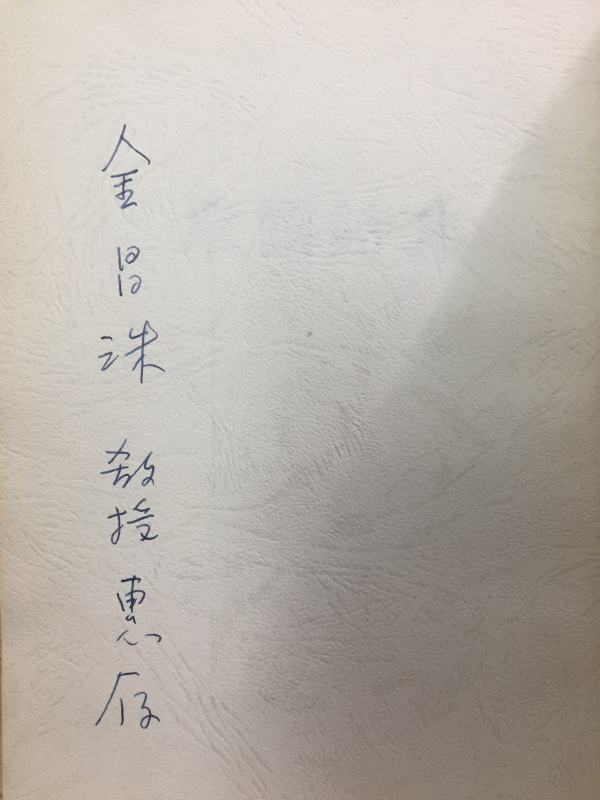 金昌洙 教授 惠存